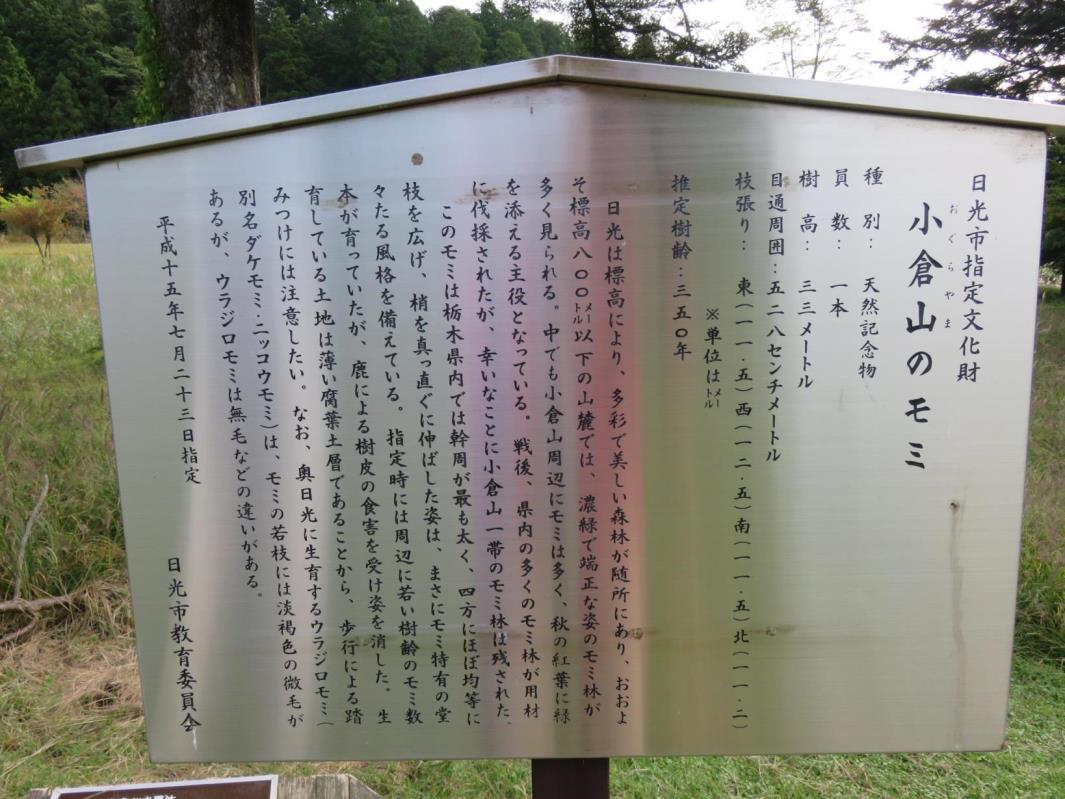 日光市指定文化財
おぐらやま
小倉山のモミ
種別：天然記念物
員数：一本
樹高：三三メートル
目通周囲：五二八センチメートル
枝張り：東(一一.五)西(一二.五)南(一一.五)北(一一.二)
※単位はメートル
推定樹齢：三五〇年
日光は標高により、多彩で美しい森林が随所にあり、おおよ
そ標高八〇〇メートル以下の山麓では、濃緑で端正な姿のモミ林が
多く見られる。中でも小倉山周辺にモミは多く、秋の紅葉に緑
を添える主役となっている。戦後、県内の多くのモミ林が用材
に伐採されたが、幸いなことに小倉山一帯のモミ林は残された。
このモミは栃木県内では幹周が最も太く、四方にほぼ均等に
枝を広げ、梢を真っ直ぐに伸ばした姿は、まさにモミ特有の堂
々たる風格を備えている。指定時には周辺に若い樹齢のモミ数
本が育っていたが、鹿による樹皮の食害を受け姿を消した。生
育している土地は薄い腐葉土層であることから、歩行による踏
みつけには注意したい。なお、奥日光に生育するウラジロモミ(
別名ダケモミ・ニッコウモミ)は、モミの若枝には淡褐色の微毛が
あるが、ウラジロモミは無毛などの違いがある。
平成十五年七月二十三日指定
日光市教育委員会